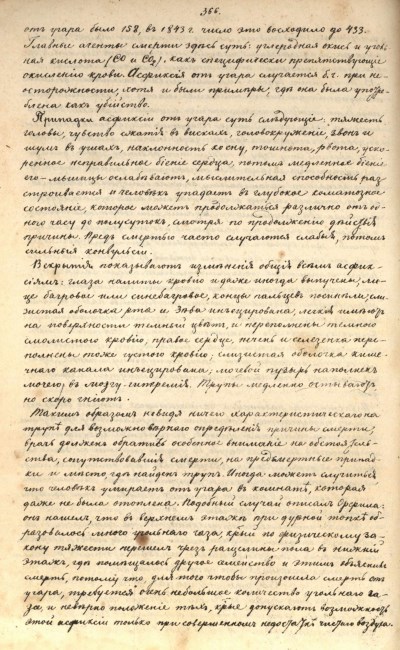 366.
отъ угара было 152, въ 1843 г. число это восходило до 433.
Главные агенты смерти здѣсь суть: углеродная окись и уголь-
ная кислота (CO и CO₂), какъ специфически препятствующіе
окисленію крови. Асфиксія отъ угара случается б. ч. при не-
осторожности, хотя и были примѣры, гдѣ она была упот-
блена какъ убійство.
Припадки асфиксіи отъ угара суть слѣдующіе: тяжесть
головы, чувство сжатія въ вискахъ, головокруженіе, звонъ и
шумъ въ ушахъ, наклонность ко сну, тошнота, рвота, уско-
ренное неправильное біеніе сердца, потомъ медленное біеніе
его – мышцы ослабѣваютъ, мыслительная способность раз
строивается и человѣкъ упадаетъ въ глубокое коматозное
состояніе, которое можетъ продолжаться различно отъ од-
ного часу до полусутокъ, смотря по продолженію дѣйствія
причины. Предъ смертью часто случаются слабыя, потомъ
сильныя конвульсіи.
Вскрытія показываютъ измѣненія общія всѣмъ асфик-
сіямъ: глаза налиты кровію и даже иногда выпучены, ли-
це багровое или синебагровое, концы пальцевъ посинѣли, сли-
зистая оболочка рта и зѣва инъецирована, легкія имѣютъ
на поверхности темный цвѣтъ, и переполнены темною
смолистою кровію, правое сердце, печень и селезенка пере-
полнены тоже густою кровію; слизистая оболочка кишеч-
наго канала инъецирована; мочевой пузырь наполненъ
мочею; въ мозгу гиперемія. Трупы медленно остываютъ
но скоро гніютъ.
Такимъ образомъ невидя ничего характеристическаго на
трупѣ для возможно вѣрнаго опредѣленія причины смерти,
врачъ долженъ обратить особенное вниманіе на обстоятель-
ства, сопутствовавшія смерти, на предсмертные припад-
ки и мѣсто, гдѣ найденъ трупъ. Иногда можетъ случиться
что человѣкъ умираетъ отъ угара въ комнатѣ, которая
даже не была отоплена. Подобный случай описалъ Орфила:
онъ нашелъ, что въ верхнемъ этажѣ при дурной топкѣ об-
разовалось много угольнаго газа, крый по физическому за-
кону тяжести перешелъ чрезъ ращелины пола въ нижній
этажъ, гдѣ помѣщалось другое семейство и этимъ объяснилъ
смерть, потому что для того чтобы произошла смерть отъ
угара, требуется очень небольшое количество угольнаго га-
за, и невѣрно положеніе тѣхъ, крые допускаютъ возможность
этой асфиксіи только при совершенномъ недостаткѣ чистаго воздуха.